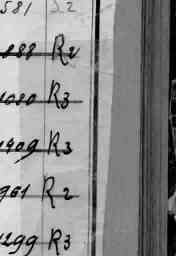 581 S2
288 R2
1080 R3
1409 R3
961 R2
1299 R3